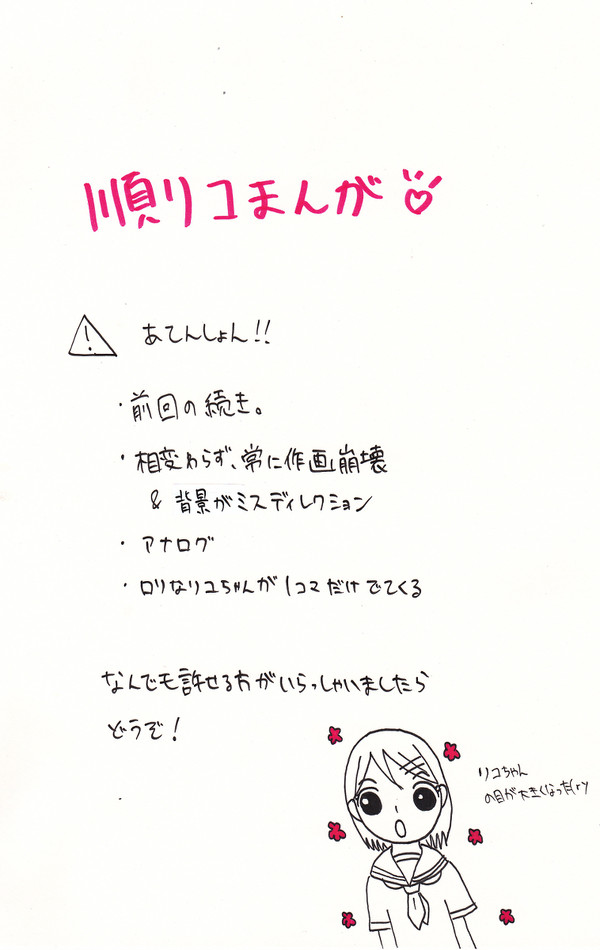 順リコまんが♡
! あてんしょん!!
・前回の続き。
・相変わらず、常に作画崩壊
& 背景がミスディレクション
・アナログ
・ロリなリコちゃんが1コマだけでてくる
なんでも許せる方がいらっしゃいましたら
どうぞ!
リコちゃん
の目が大きくなった(ry